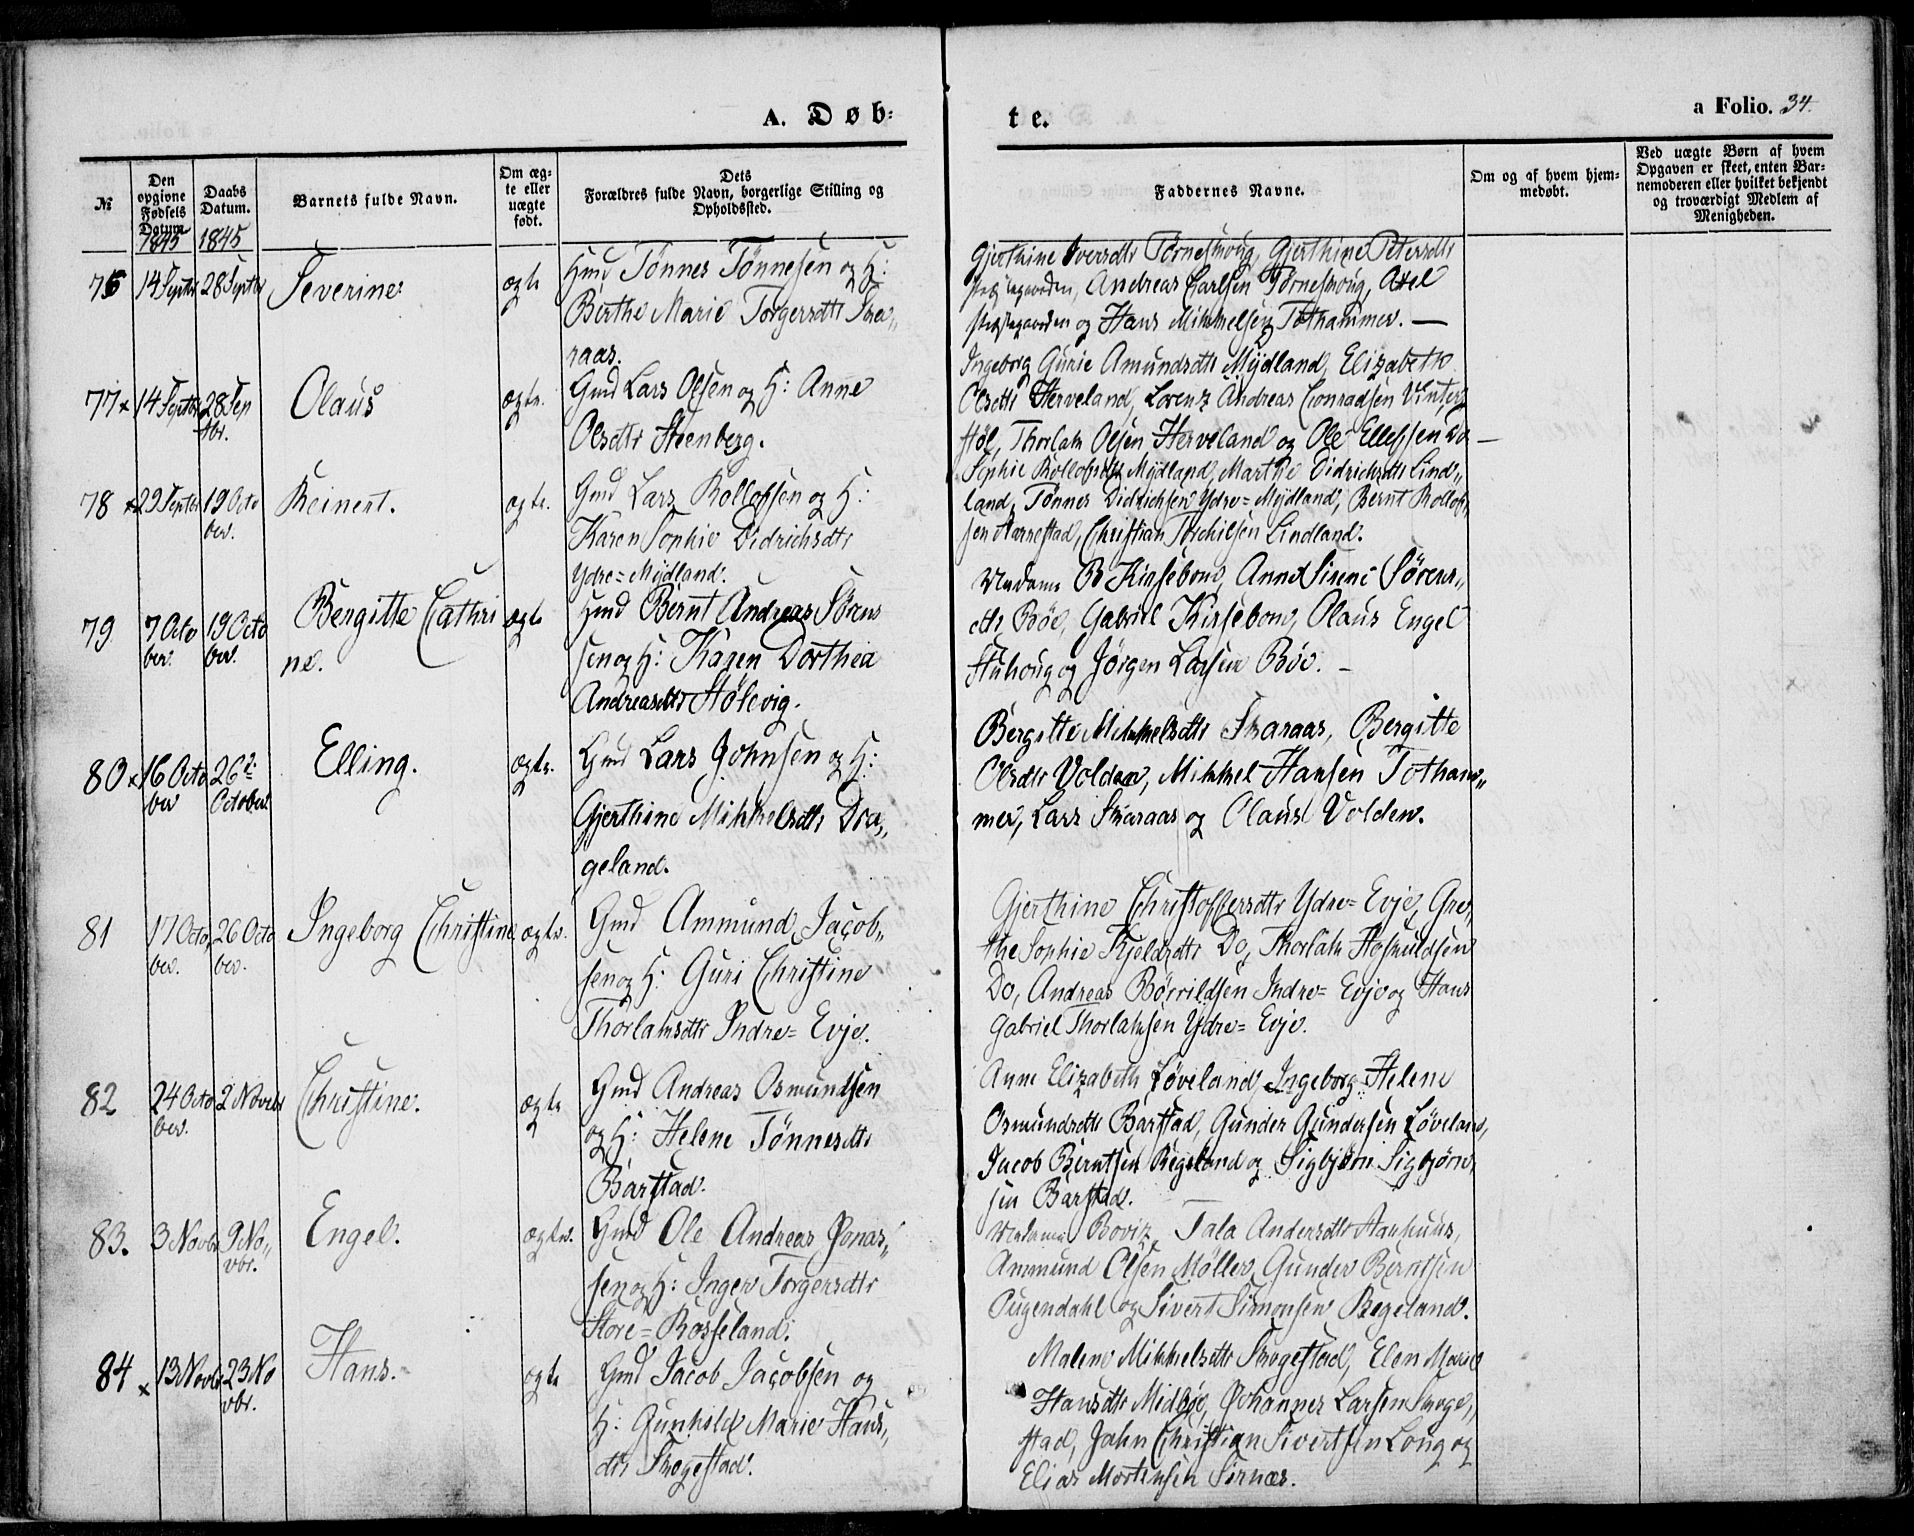 A. Døb=
te.
a Folio. 34.
№
Den opgivne Fødsels Datum.
1845
Daabs Datum.
1845
Barnets fulde Navn.
Om ægte eller uægte født.
Dets
Forældres fulde Navn, borgerlige Stilling og
Opholdssted.
Faddernes Navne.
Om og af hvem hjem=
medøbt.
Ved uægte Børn af hvem
Opgaven er skeet, enten Bar=
nemoderen eller hvilket bekjendt
og troværdigt Medlem af
Menigheden.
76 14 Septbr 28 Septbr Severine. ægte
Hmd Tønnes Tønnesen og H:
Berthe Marie Torgersdtr Skaa„
raas.
Gjerthine Iversdtr Tornesmoug, Gjerthine Petersdtr
Præstegaarden, Andreas Carlsen Tornesmoug, Axel
Præstegaarden og Hans Mikkelsen Tothammer. —
77 x 14 Septbr 28 Sep
tbr. Olaus ægte.
Gmd Lars Olsen og H: Anne
Olsdtr Steenberg.
Ingeborg Gurie Amundsdtr Mydland, Elizabeth
Olsdtr Herveland, Lorenz Andreas Conradsen Vinter
støl, Thorlak Olsen Herveland og Ole Ellefsen Do —
78 x 29 Septbr 19 Octo
ber. Reinert. ægte.
Gmd Lars Rollofsen og H:
Karen Sophie Didrichsdtr
Ydre=Mydland.
Sophie Rollofsdtr Mydland, Marthe Didrichsdtr Lind„
land, Tønnes Didrichsen Ydre=Mydland, Bernt Rollof
sen Aarrestad, Christian Torchilsen Lindland.
79 7 Octo
ber. 19 Octo
ber. Bergitte Cathri
ne. ægte
Hmd Bernt Andreas Sørens
sen og H: Karen Dorthea
Andreasdtr Stølevig.
Madame B Kirsebom, Anne Sirene Sørens„
dtr Bøe, Gabriel Kirsebom, Olaus Engel
Stuhoug og Jørgen Larsen Bøe. —
80 x 16 Octo
ber 26de
October Elling. ægte.
Gmd Lars Johnsen og H:
Gjerthine Mikkelsdtr Dra„
geland.
Bergitte Mikkelsdtr Skaraas, Bergitte
Olsdtr Volden, Mikkel Hansen Totham„
mer, Lars Skaraas og Olaus Volden.
81 17 Octo
ber. 26 Octo
ber. Ingeborg Christine ægte.
Gmd Ammund Jacob„
sen og H: Guri Christine
Thorlaksdtr Indre=Evje.
Gjerthine Christoffersdtr Ydre=Evje, Gre„
the Sophie Kjeldsdtr Do, Thorlak Hoskuldsen
Do, Andreas Børrildsen Indre=Evje og Hans
Gabriel Thorlaksen Ydre=Evje.
82 24 Octo
ber. 2 Novbr Christine. ægte
Gmd Andreas Osmundsen
og H: Helene Tønnesdtr
Barstad.
Anne Elizabeth Løveland, Ingeborg Helene
Osmundsdtr Barstad, Gunder Gundersen Løveland,
Jacob Berntsen Regeland og Sigbjørn Sigbjørn
sen Barstad.
83. 3 Novbr 9 No„
vbr. Engel. ægte.
Gmd Ole Andreas Jonas„
sen og H: Inger Torgersdtr
Store=Rosseland.
Madame Bovitz, Tala Andersdtr Aarhuus,
Ammund Olsen Møller, Gunder Berntsen
Pugendahl og Sivert Simonsen Regeland.
84 x 13 Novbr 23 No
vbr. Hans. ægte
Gmd Jacob Jacobsen og
H: Gunhild Marie Hans„
dtr Skogestad.
Malene Mikkelsdtr Skogestad, Elen Marie
Hansdtr Midbøe, Johannes Larsen Skoge„
stad, John Christian Sivertsen Long og
Elias Mortensen Sirnæs.